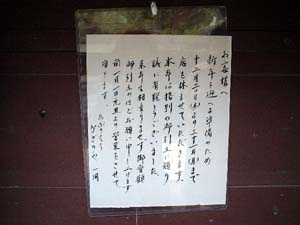 お客様へ
新年を迎へる準備のため
十二月 日(木)より三十一日(月)まで
店を休ませていただきます。
本年は格別の御引立を賜り
誠に有難うございました。
来年も相変りませず御愛顧
御引立のほどお願い申し上げます
尚一月一日元旦より営業をさせて
居ります。
一同